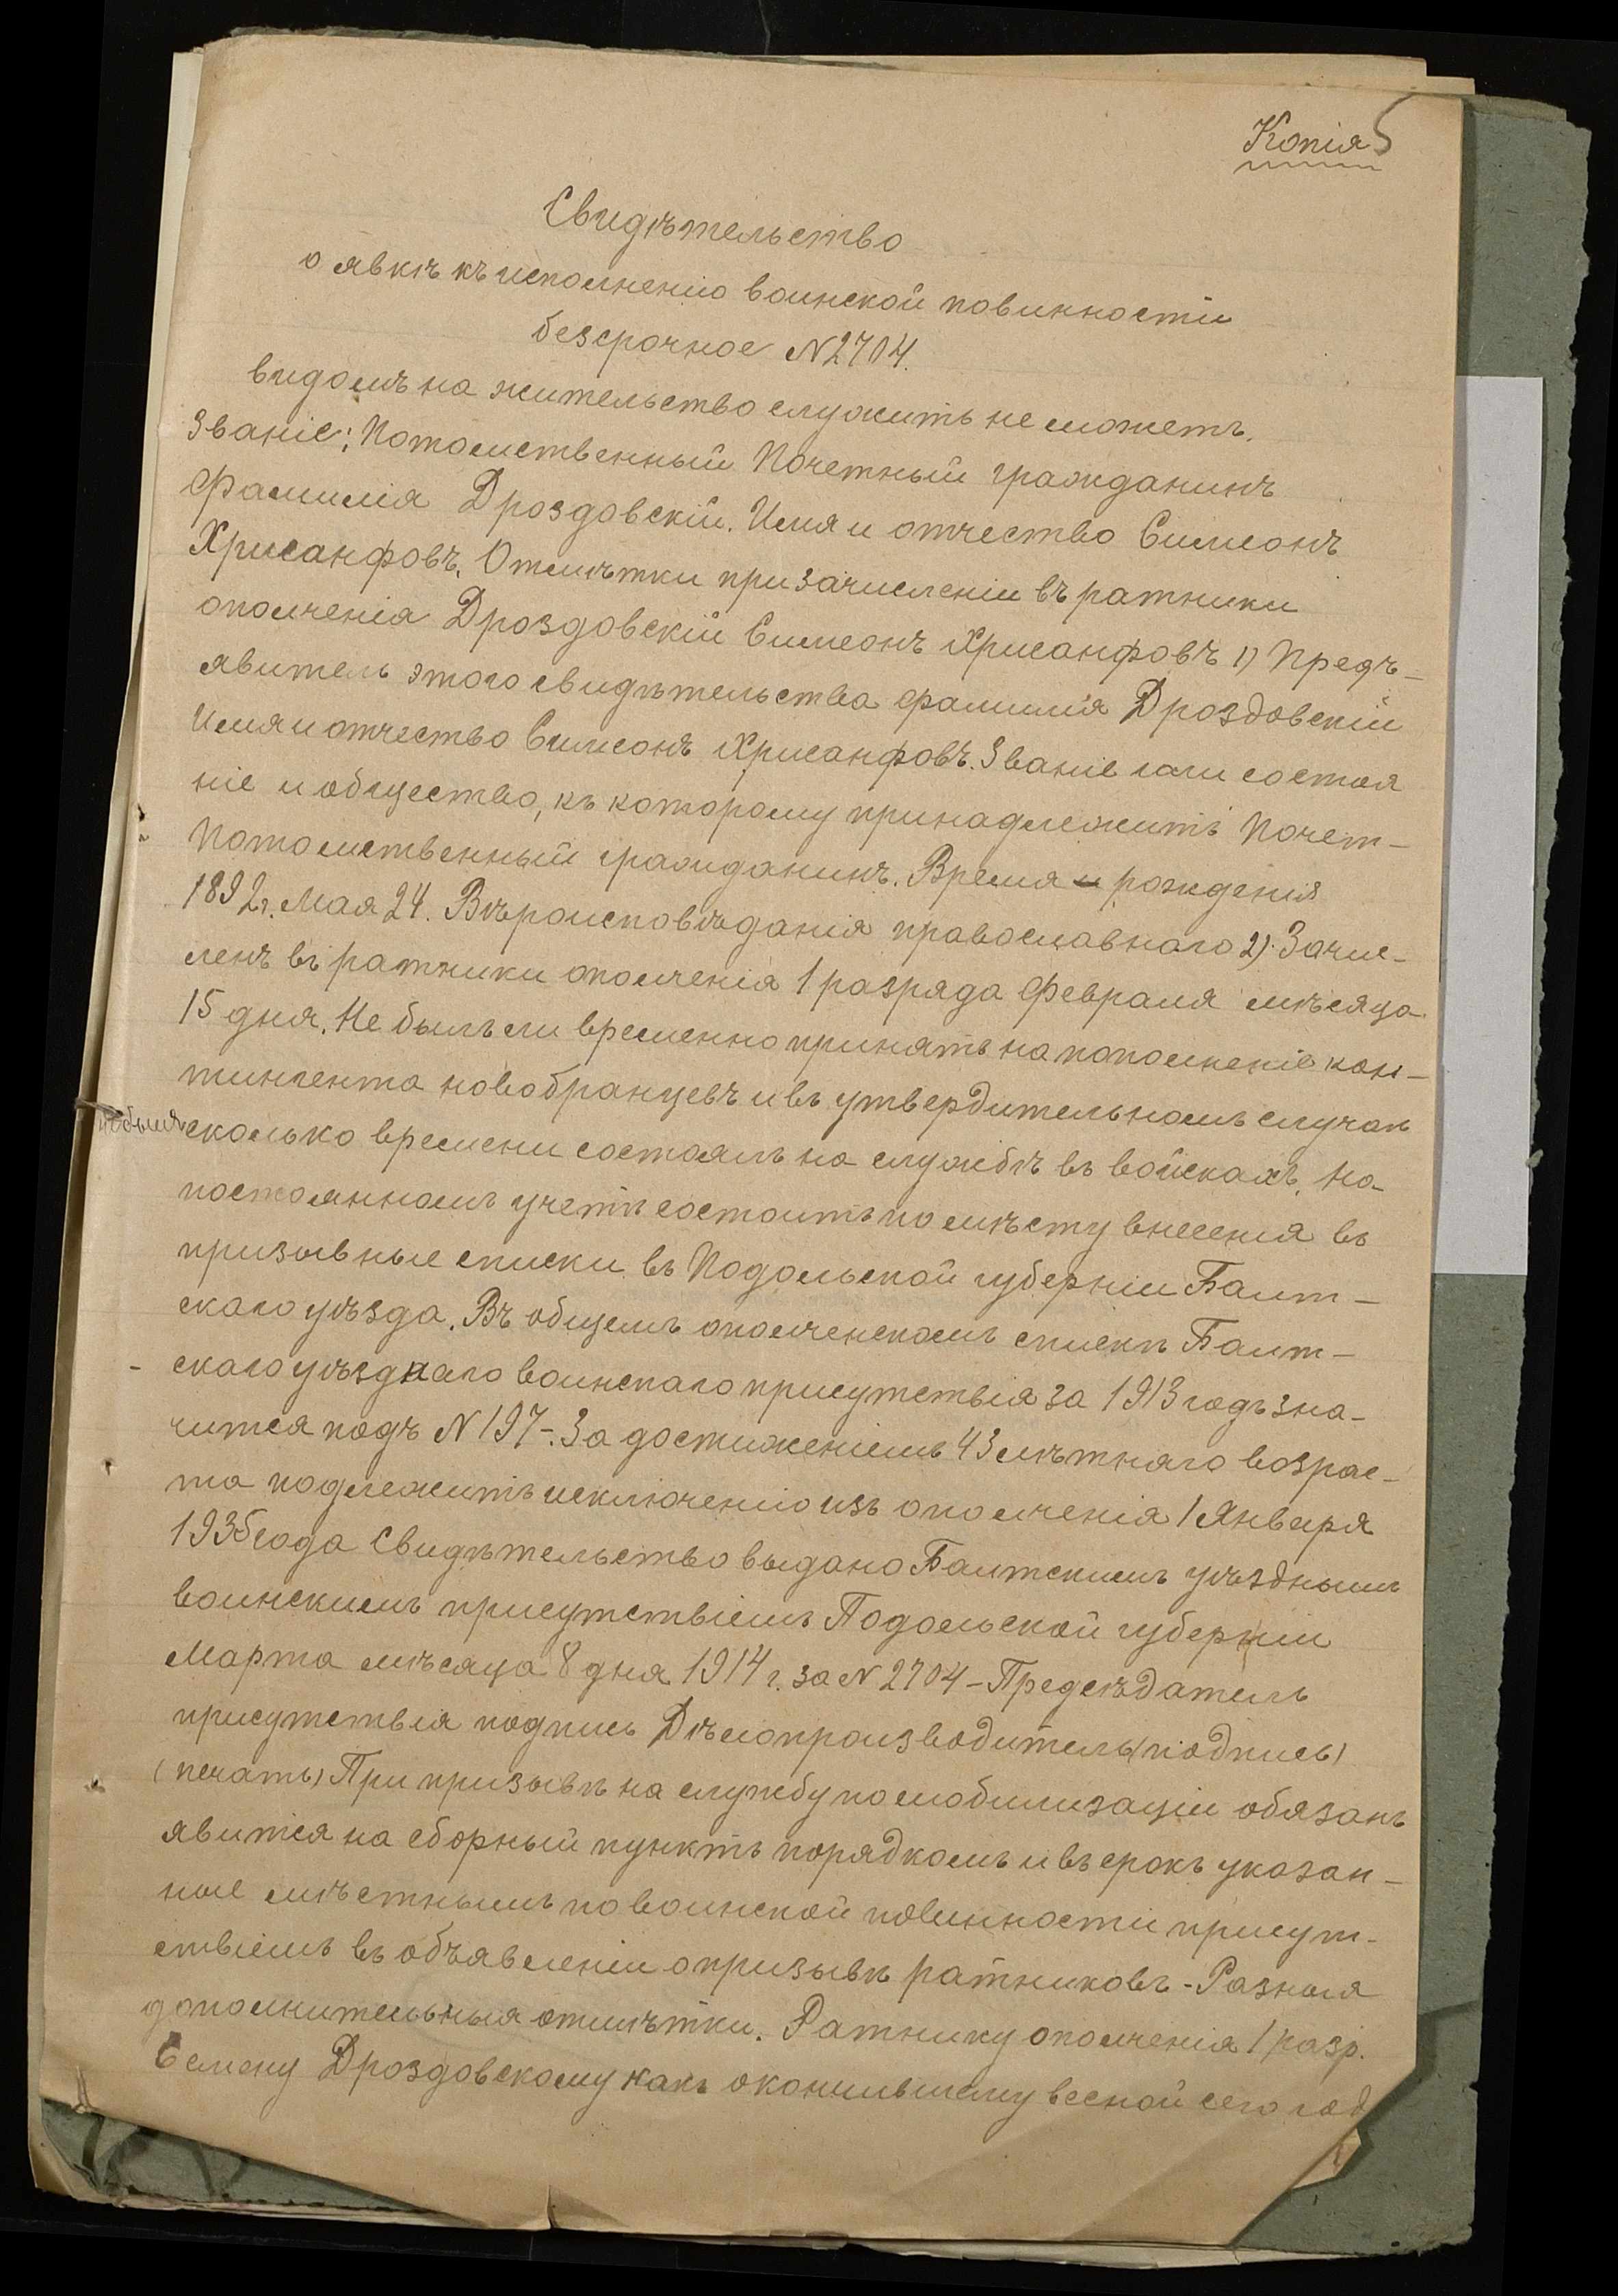 Копія 5
Свидѣтельство
о явкѣ къ исполненію воинской повинности
безсрочное N 2704.
видомъ на жительство служить не можетъ.
Званіе: Потомственный Почетный гражданинъ
Фамилія Дроздовскій. Имя и отчество Симеонъ
Хрисанфовъ. Отмѣтки при зачисленіи въ ратники
ополченія Дроздовскій Симеонъ Хрисанфовъ 1) Предъ-
явитель этого свидѣтельства фамилія Дроздовскій
Имя и отчество Симеонъ Хрисанфовъ. Званіе или состоя
ніе и общество, къ которому принадлежитъ Почет-
Потомственный гражданинъ. Время рожденія
1892 г. Мая 24. Вѣроисповѣданія православнаго 2). Зачис-
ленъ въ ратники ополченія 1 разряда Февраля мѣсяца
15 дня. Не былъ ли временно принятъ на пополненіе кон-
тингента новобранцевъ и въ утвердительномъ случаѣ
не былъ сколько времени состоялъ на службѣ въ войскахъ. На
постоянномъ учетѣ состоитъ по мѣсту внесенія въ
призывные списки въ Подольской губерніи Балт-
скаго уѣзда. Въ общемъ ополченскомъ спискѣ Балт-
скаго уѣзднаго воинскаго присутствія за 1913 годъ зна-
чится подъ N 197-. За достиженіемъ 43 лѣтняго возрас-
та подлежитъ исключенію изъ ополченія 1 Января
1936 года Свидѣтельство выдано Балтскимъ уѣзднымъ
воинскимъ присутствіемъ Подольской губерніи
Марта мѣсяца 8 дня 1914 г. за N 2704 - Предсѣдатель
присутствія подпись Дѣлопроизводитель (подпись)
(печать) При призывѣ на службу по мобилизаціи обязанъ
явится на сборный пунктъ порядкомъ и въ срокъ указан-
ные мѣстнымъ по воинской повинности присут-
ствіемъ въ объявленіи о призывѣ ратниковъ - Разныя
дополнительныя отмѣтки. Ратнику ополченія 1 разр.
Семену Дроздовскому какъ окончившему весной сего год